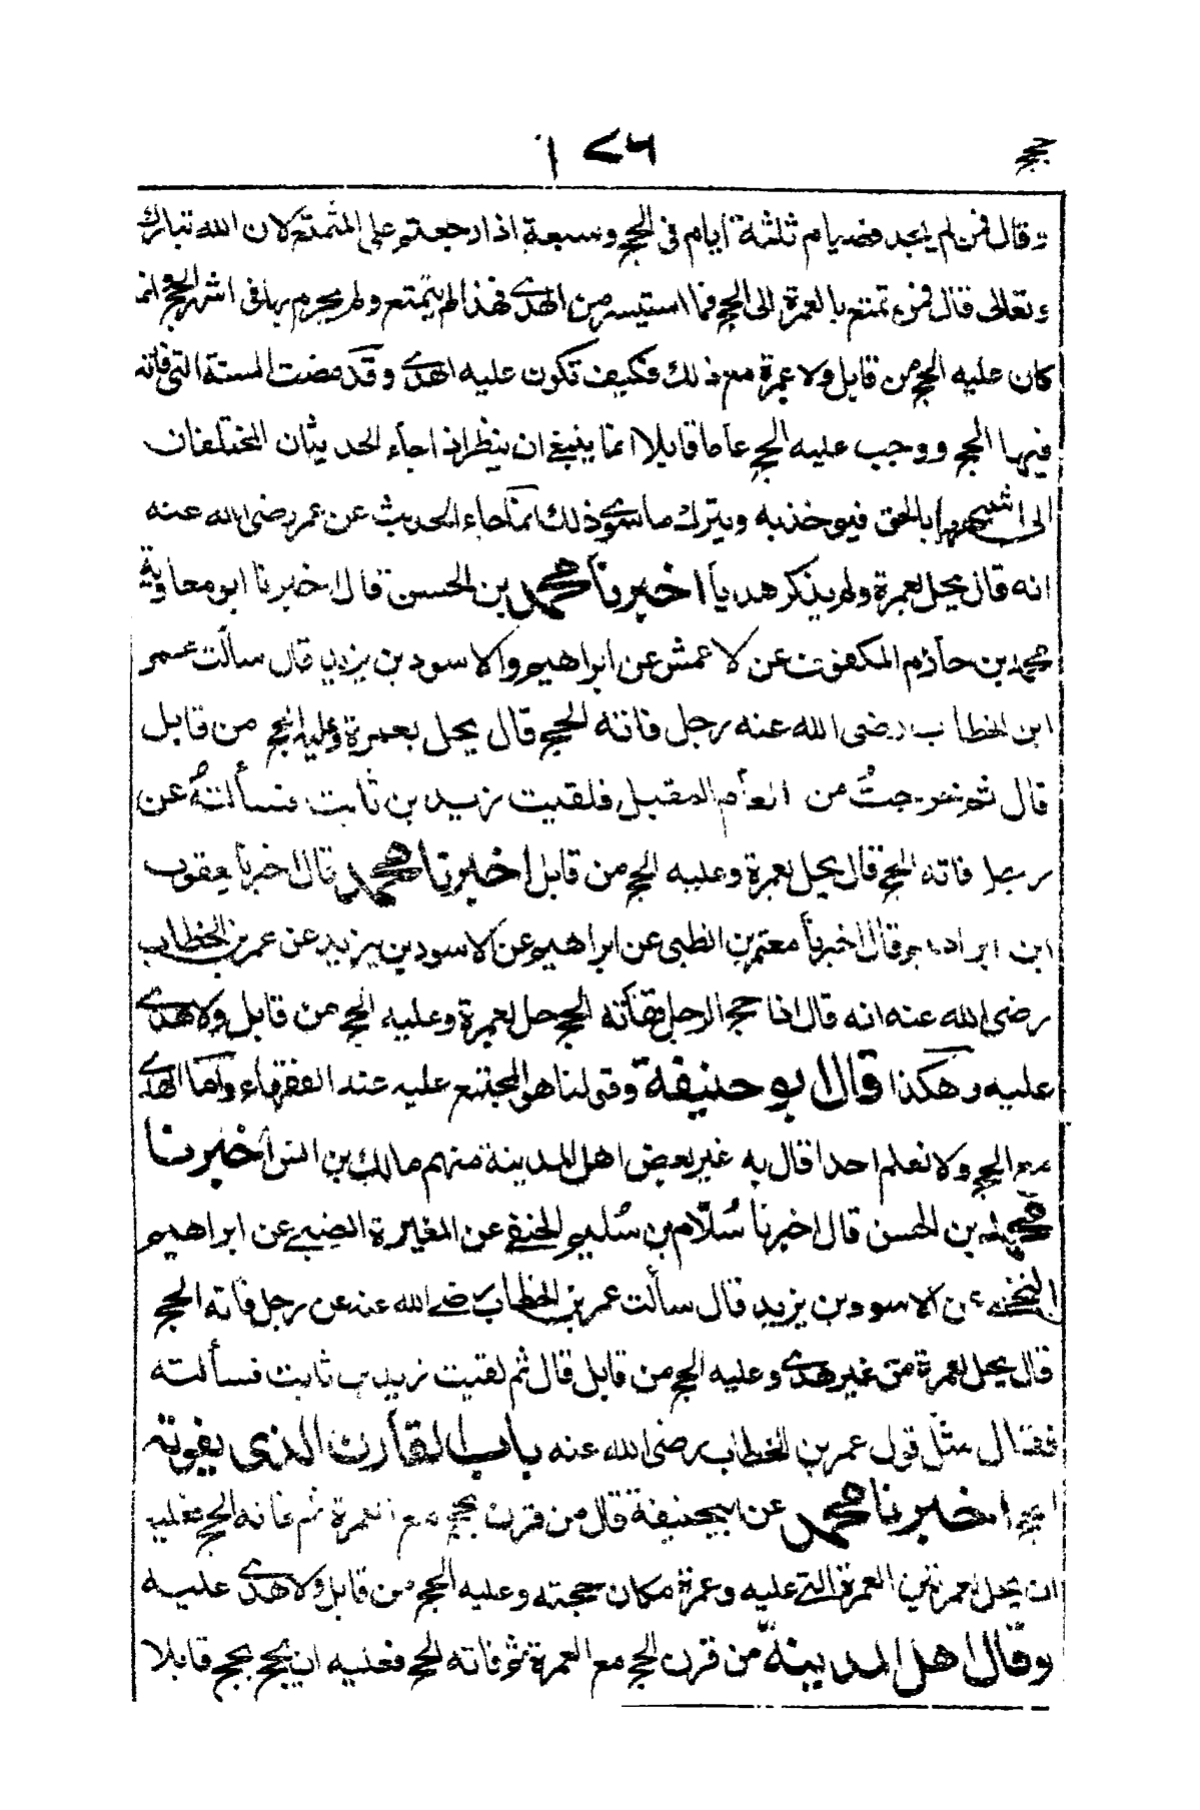 حج ١٧٦
وقال فمن لم يجد فصيام ثلثة ايام فى الحج وسبعة اذا رجعتم على المتمتع لان الله تبارك
وتعالى قال فمن تمتع بالعمرة الى الحج فما استيسر من الهدى فهذا لم يتمتع ولم يحرم بها فى اشهر الحج انما
كان عليه الحج من قابل ولا عمرة مع ذلك فكيف تكون عليه الهدى وقد مضت السنة التى فاته
فيها الحج ووجب عليه الحج عاما قابلا انما ينبغ ان ينظر اذ اجاء الحديثان المختلفان
الى اشبههما بالحق فيوخذ به ويترك ما سوى ذلك انما جاء الحديث عن عمر رضى الله عنه
انه قال يحل بعمرة ولم يذكر هديا اخبرنا محمد بن الحسن قال اخبرنا ابو معاوية
محمد بن حازم المكفوف عن الاعمش عن ابراهيم والاسود بن يزيد قال سألت عمر
ابن الخطاب رضى الله عنه رجل فاتته الحج قال يحل بعمرة وعليه الحج من قابل
قال ثم خرجتُ من العام المقبل فلقيت زيد بن ثابت فسألتهُ عن
رجل فاته الحج قال يحل بعمرة وعليه الحج من قابل اخبرنا محمد قال اخبرنا يعقوب
ابن ابراهيم قال اخبرنا معتمر بن الظبى عن ابراهيم عن الاسود بن يزيد عن عمر بن الخطاب
رضى الله عنه انه قال اذا حج الرجل ففاته الحج حل بعمرة وعليه الحج من قابل ولا هدى
عليه وهكذا قال ابو حنيفة وقولنا هو المجتمع عليه عند الفقهاء واما الهدى
مع الحج ولا نعلم احدا قال به غير بعض اهل المدينة منهم مالك بن انس اخبرنا
محمد بن الحسن قال اخبرنا سُلّام بن سُليم الحنفى عن المغيرة الضبى عن ابراهيم
النخعى عن الاسود بن يزيد قال سألت عمر بن الخطاب رضى الله عنه عن رجل فاته الحج
قال يحل بعمرة من غير هدى وعليه الحج من قابل قال ثم لقيت زيد بن ثابت فسألته
فقال مثل قول عمر بن الخطاب رضى الله عنه باب القارن الذى يفوته
الحج اخبرنا محمد عن ابيحنيفة قال من قرن بحج مع العمرة ثم فاته الحج فعليه
ان يحل بعمرتين العمرة التى عليه وعمرة مكان حجته وعليه الحج من قابل ولا هدى عليه
وقال اهل المدينة من قرن الحج مع العمرة ثم فاته الحج فعليه ان يحج بحج قابلا